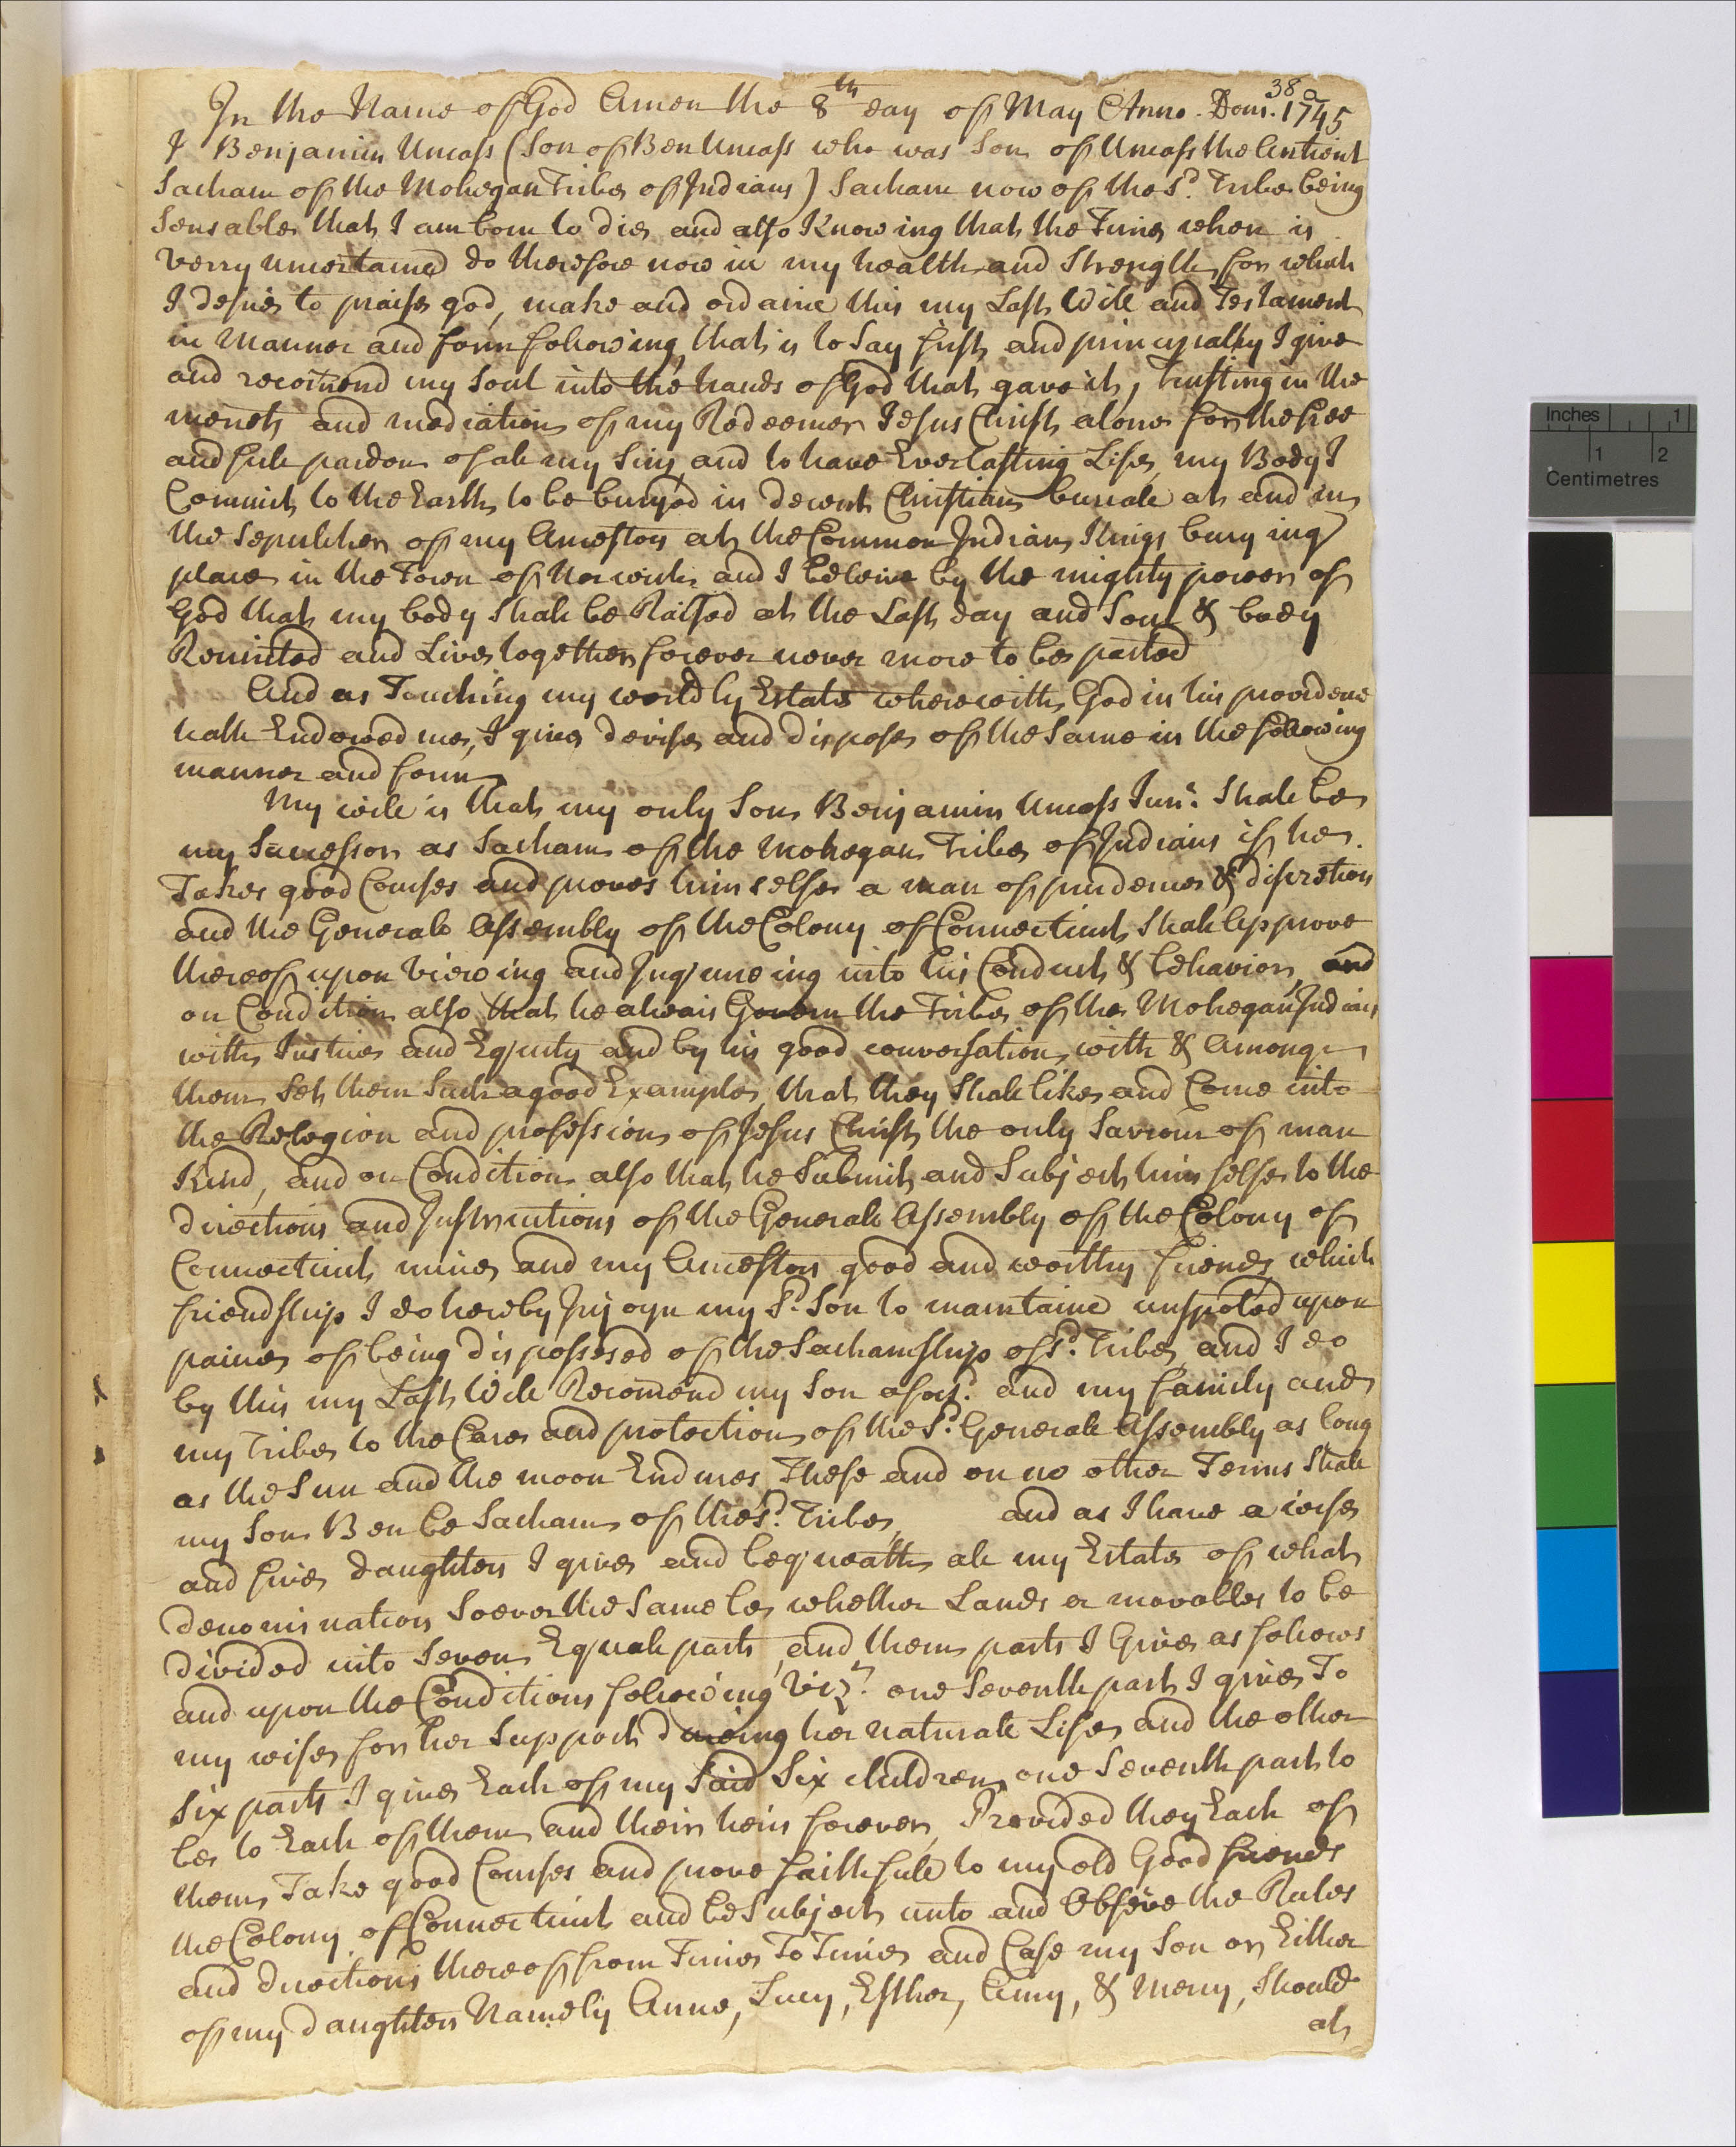 38a
In the Name of God Amen the 8th day of May Anno. Dom. 1745
I Benjamin Uncass (Son of Ben Uncass who was Son of Uncass the Antient
Sacham of the Mohegan Tribe of Indians) Sacham now of the Sd. Tribe being
Sensable that I am born to die and also Knowing that the Time when is
verry uncertaine do therefore now in my health and Strength for which
I desire to praise god, make and ordaine this my Last Will and Testament
in Manner and form following, that is to Say first and principally I give
and recommend my Soul into the hands of God that gave it, trusting in the
merets and mediation of my Redeemer Jesus Christ alone for the free
and full pardon of all my Sins, and to have Everlasting Life, my Body I
Commit to the Earth to be buryed in decent Christian buriall at and in
the Sepulcher of my Ancestors at the Common Indian Kings burying
place in the Town of Norwich and I beleive by the mighty power of
God that my body Shall be Raised at the Last day and Soul & body
Reunited and Live together forever never more to be parted
And as Touching my worldly Estate wherewith God in his providence
hath Endowed me, I give devise and dispose of the Same in the following
manner and form
My will is that my only Son Benjamin Uncass Junr. Shall be
my Successor as Sacham of the Mohegan Tribe of Indians if he
Takes good Courses and proves himselfe a man of prudence & discretion
and the Generall Assembly of the Colony of Connecticut Shall Approve
thereof upon Viewing and Inquireing into his Conduct & behavior, and
on Condition also that he alwais Govern the Tribe of the Mohegan Indians
with Justice and Equity and by his good conversation with & Among
them Set them Such a good Example, that they Shall like and Come into
the Relegion and profession of Jesus Christ the only Saviour of man
Kind, and on Condition also that he Submit and Subject himselfe to the
directions and Instructions of the Generall Assembly of the Colony of
Connecticut mine and my Ancestors good and worthy friends, which
friendship I do hereby Injoyn my Sd. Son to maintaine unspoted upon
paine of being dispossesed of the Sachamship of Sd. Tribe, and I do
by this my Last Will Recomend my Son aforsd. and my family and
my Tribe to the Care and protection of the Sd. Generall Assembly as long
as the Sun and the moon Endures, These and on no other Terms Shall
my Son Ben be Sacham of the Sd. Tribe, and as I have a wife
and five daughters I give and bequeath all my Estate of what
denomination Soever the Same be, whether Lands or movables to be
divided into Seven Equall parts, and them parts I Give as follows
and upon the Conditions following Vizt. one Seventh part I give To
my wife for her Support dureing her naturall Life, and the other
Six parts I give Each of my Said Six children one Seventh part to
be to Each of them and their heirs forever, Provided they Each of
them, Take good Courses and prove faithfull to my old Good friends
the Colony of Connecticut and be Subject unto and Observe the Rules
and directions thereof from Time To Time and Case my Son or Either
of my daughters Namely Anne, Lucy, Esther, Amy, & Mercy, Should
at
Inches 1
1 2
Centimetres